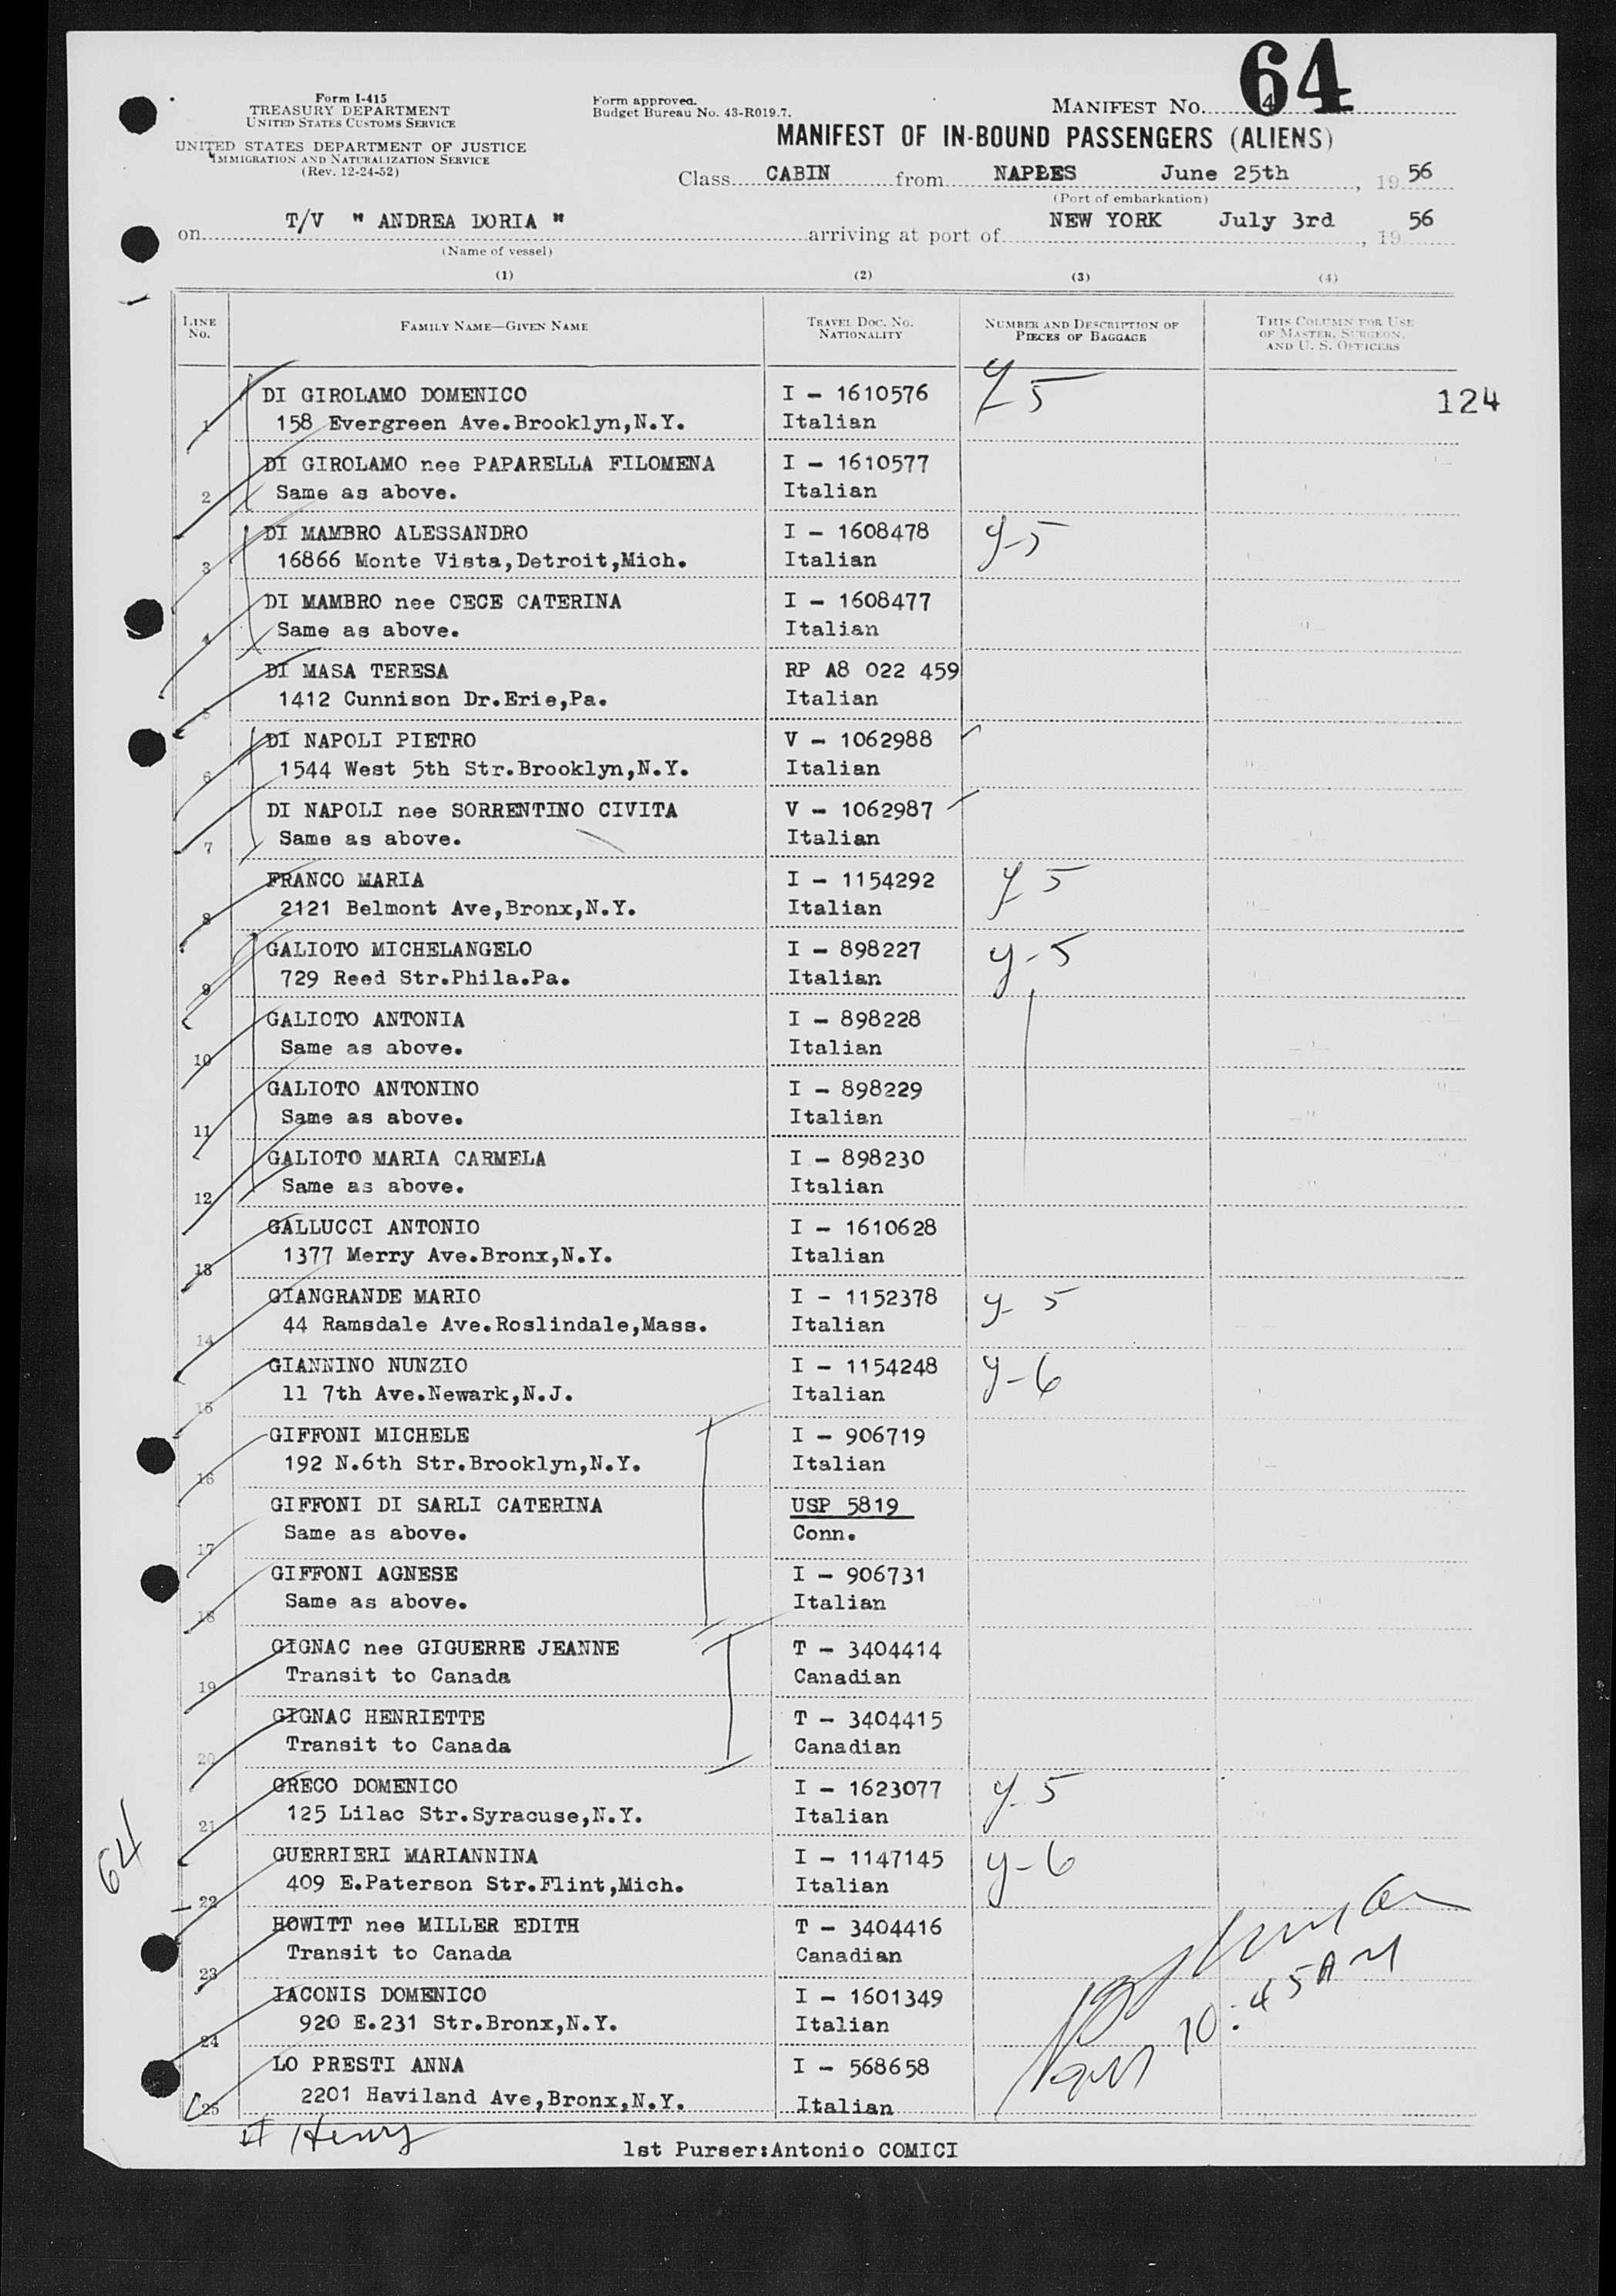 Form I-415
TREASURY DEPARTMENT
UNITED STATES CUSTOMS SERVICE
UNITED STATES DEPARTMENT OF JUSTICE
IMMIGRATION AND NATURALIZATION SERVICE
(Rev. 12-24-52)
Form approved.
Budget Bureau No. 43-R019.7.
MANIFEST NO. 4
64
MANIFEST OF IN-BOUND PASSENGERS (ALIENS)
Class CABIN from NAPLES June 25th, 1956
(Port of embarkation)
on T/V " ANDREA DORIA " arriving at port of NEW YORK July 3rd, 1956
(Name of vessel)
(1) (2) (3) (4)
LINE NO. FAMILY NAME—GIVEN NAME TRAVEL DOC. NO. NATIONALITY NUMBER AND DESCRIPTION OF PIECES OF BAGGAGE THIS COLUMN FOR USE OF MASTER, SURGEON, AND U. S. OFFICERS
124
DI GIROLAMO DOMENICO I - 1610576 Y 5
1 158 Evergreen Ave.Brooklyn,N.Y. Italian
DI GIROLAMO nee PAPARELLA FILOMENA I - 1610577
2 Same as above. Italian
DI MAMBRO ALESSANDRO I - 1608478 y-5
3 16866 Monte Vista,Detroit,Mich. Italian
DI MAMBRO nee CECE CATERINA I - 1608477
4 Same as above. Italian
DI MASA TERESA RP A8 022 459
5 1412 Cunnison Dr.Erie,Pa. Italian
DI NAPOLI PIETRO V - 1062988
6 1544 West 5th Str.Brooklyn,N.Y. Italian
DI NAPOLI nee SORRENTINO CIVITA V - 1062987
7 Same as above. Italian
FRANCO MARIA I - 1154292 y 5
8 2121 Belmont Ave,Bronx,N.Y. Italian
GALIOTO MICHELANGELO I - 898227 y-5
9 729 Reed Str.Phila.Pa. Italian
GALIOTO ANTONIA I - 898228
10 Same as above. Italian
GALIOTO ANTONINO I - 898229
11 Same as above. Italian
GALIOTO MARIA CARMELA I - 898230
12 Same as above. Italian
GALLUCCI ANTONIO I - 1610628
13 1377 Merry Ave.Bronx,N.Y. Italian
GIANGRANDE MARIO I - 1152378 y- 5
14 44 Ramsdale Ave.Roslindale,Mass. Italian
GIANNINO NUNZIO I - 1154248 y-6
15 11 7th Ave.Newark,N.J. Italian
GIFFONI MICHELE I - 906719
16 192 N.6th Str.Brooklyn,N.Y. Italian
GIFFONI DI SARLI CATERINA USP 5819
17 Same as above. Conn.
GIFFONI AGNESE I - 906731
18 Same as above. Italian
GIGNAC nee GIGUERRE JEANNE T - 3404414
19 Transit to Canada Canadian
GIGNAC HENRIETTE T - 3404415
20 Transit to Canada Canadian
GRECO DOMENICO I - 1623077 y-5
21 125 Lilac Str.Syracuse,N.Y. Italian
64
GUERRIERI MARIANNINA I - 1147145 y-6
22 409 E.Paterson Str.Flint,Mich. Italian
HOWITT nee MILLER EDITH T - 3404416
23 Transit to Canada Canadian
IACONIS DOMENICO I - 1601349
24 920 E.231 Str.Bronx,N.Y. Italian
10:45 AM
LO PRESTI ANNA I - 568658
25 2201 Haviland Ave,Bronx,N.Y. Italian
Henry
1st Purser:Antonio COMICI